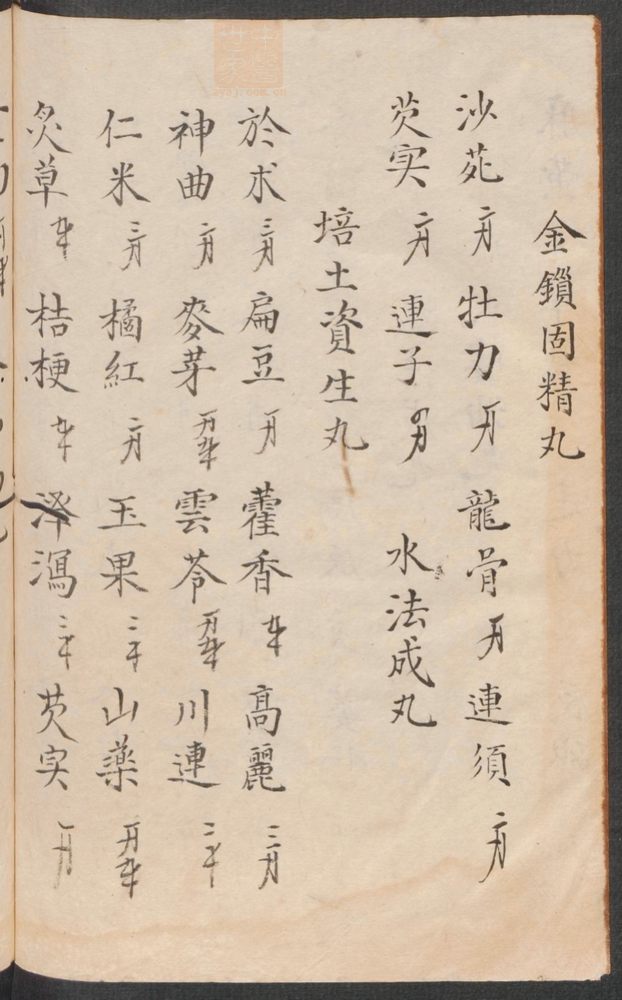 金鎖固精丸
沙苑 二両 牡力 一両 龍骨 一両 連須 二両
芡实 二両 連子 四両 水法成丸
培土資生丸
於朮 三両 扁豆 一両 藿香 五钱 高麗 三両
神曲 二両 麥芽 一両五钱 雲苓 一両五钱 川連 二钱
仁米 三両 橘紅 二両 玉果 二钱 山藥 一両五钱
炙草 五钱 桔梗 五钱 泽瀉 三钱 芡实 一両